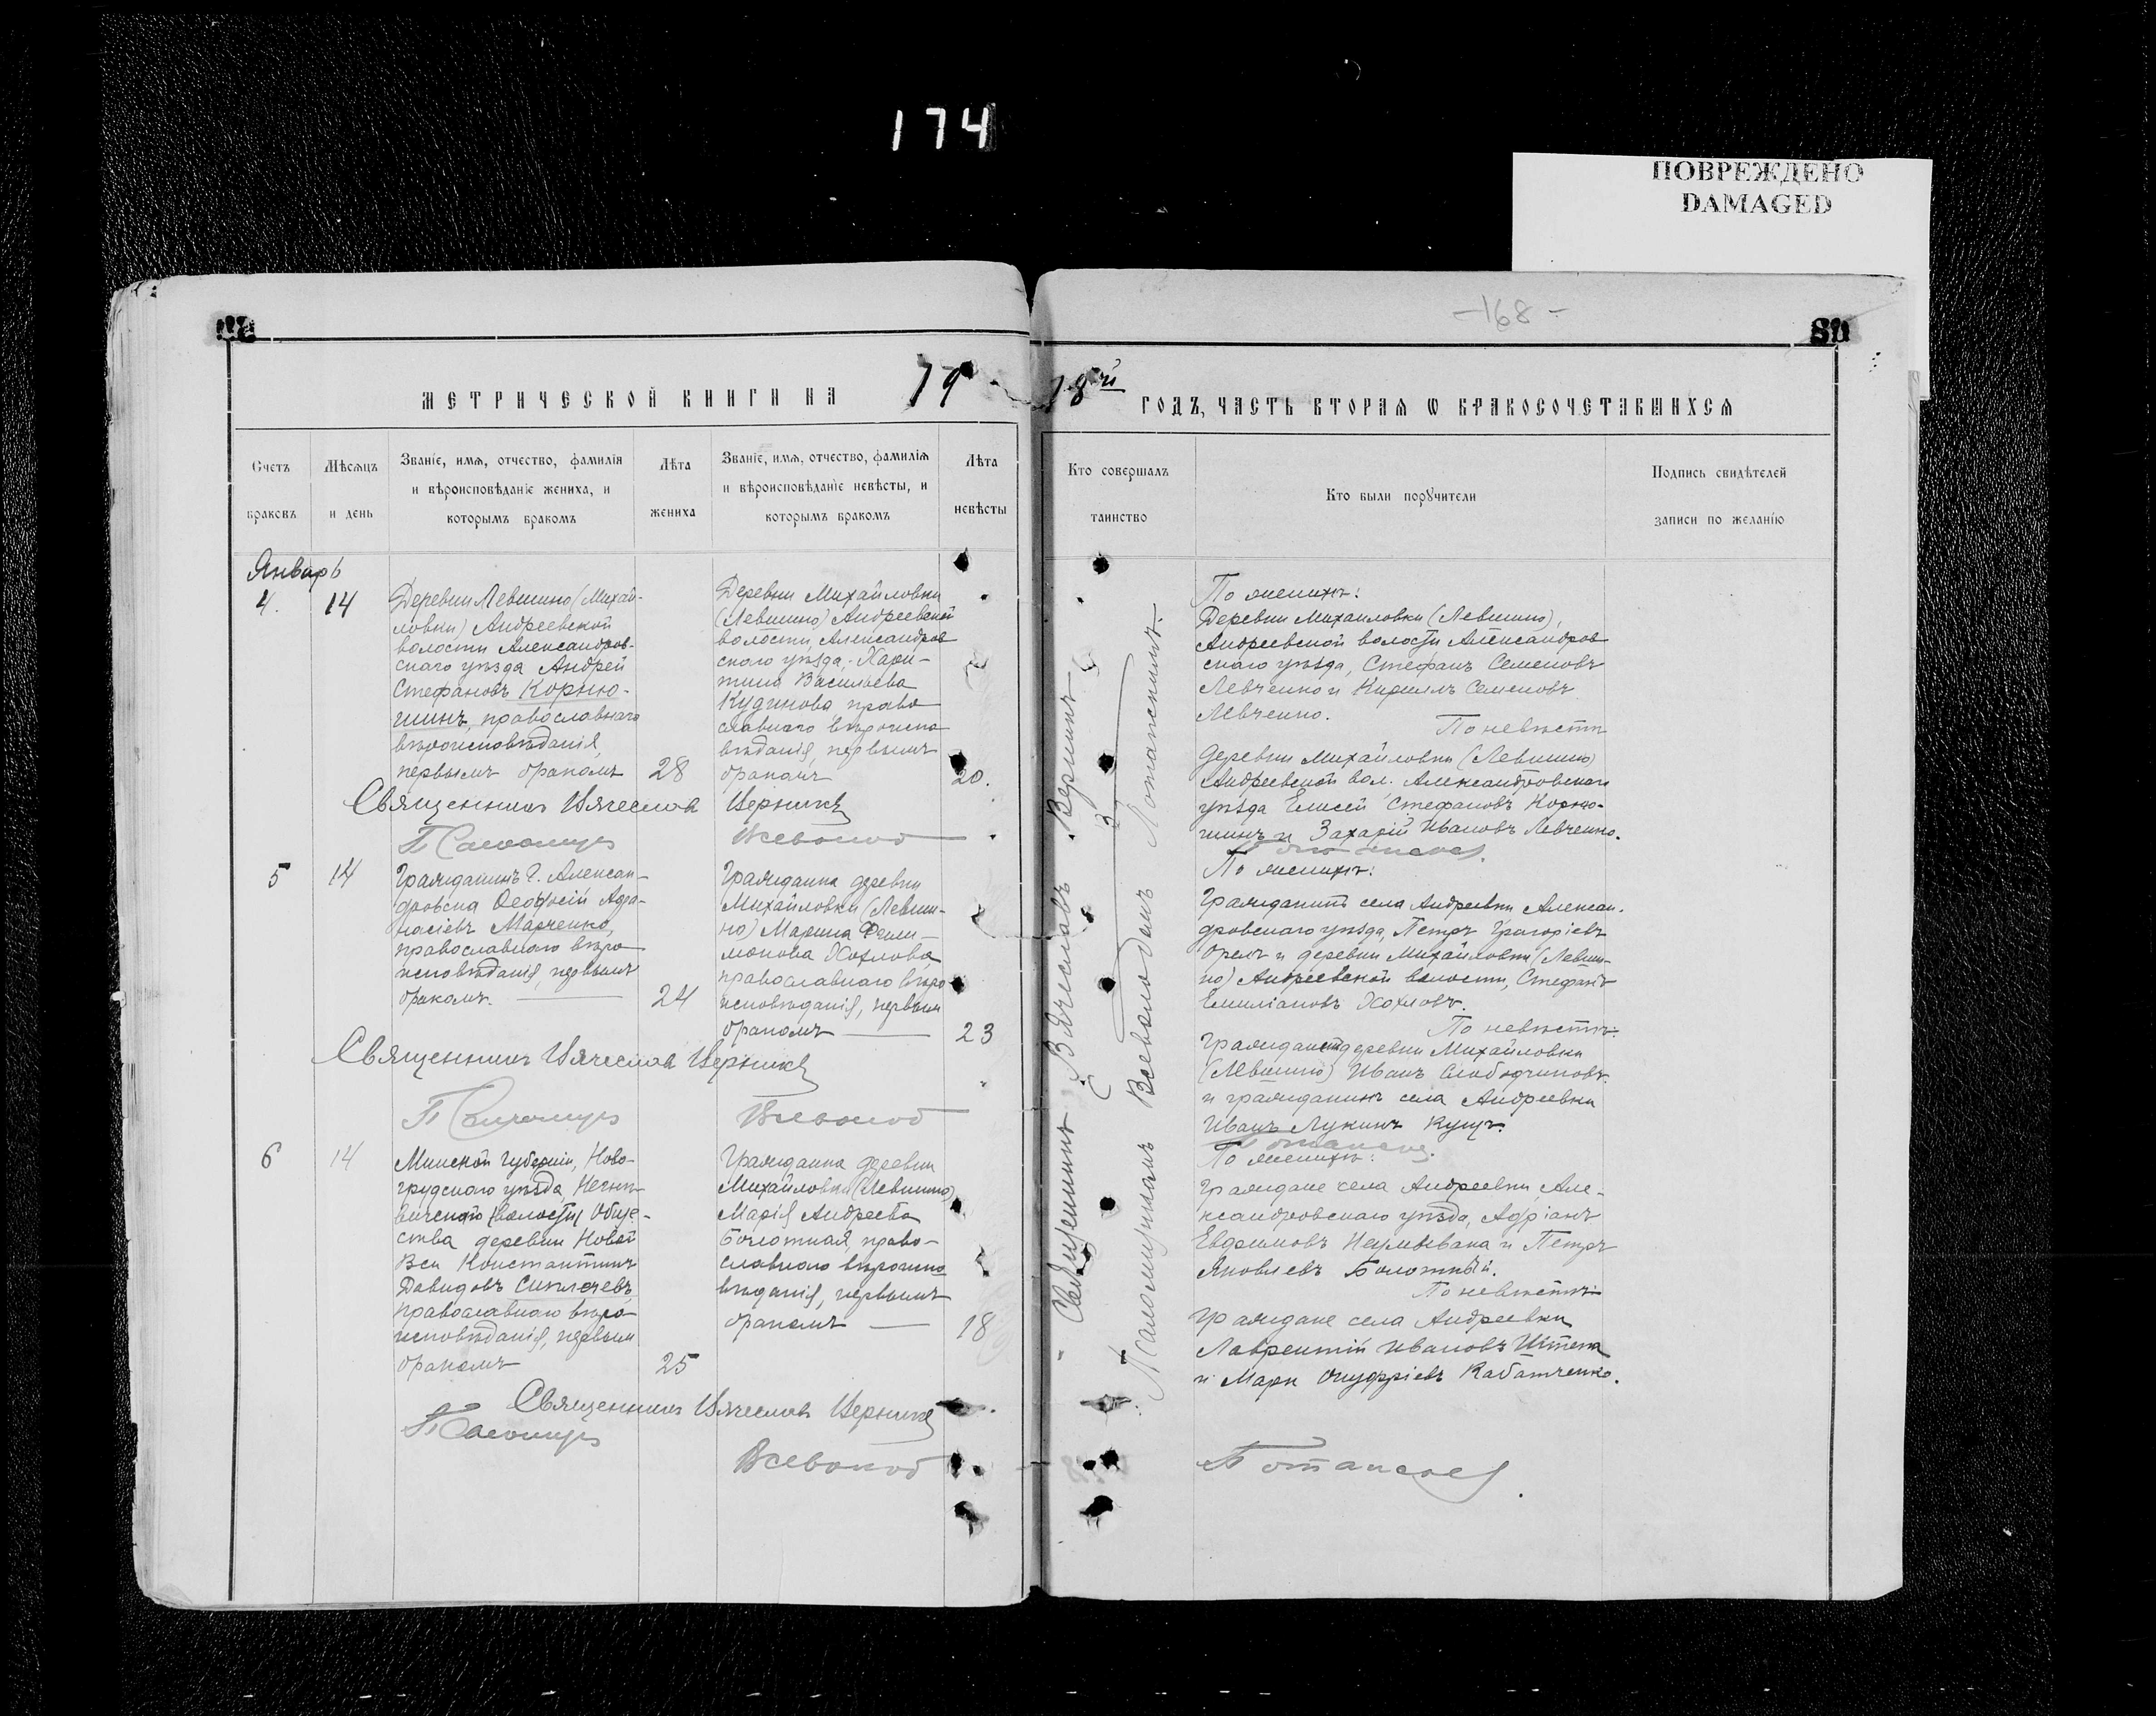 174
ПОВРЕЖДЕНО
DAMAGED
-168-
МЕТРИЧЕСКОЙ КНИГИ НА 19
18й ГОДЪ, ЧАСТЬ ВТОРАЯ Ѡ БРАКОСОЧЕТАВШИХСЯ
Счетъ браковъ
Мѣсяцъ и день
Званіе, имя, отчество, фамилія
и вѣроисповѣданіе жениха, и
которымъ бракомъ
Лѣта жениха
Званіе, имя, отчество, фамилія
и вѣроисповѣданіе невѣсты, и
которымъ бракомъ
Лѣта невѣсты
Кто совершалъ таинство
Кто были порꙋчители
Подпись свидѣтелей
записи по желанію
Январь
4. 14
Деревни Левшино (Михай-
ловки) Андреевской
волости Александров-
скаго уѣзда Андрей
Стефановъ Корню-
шинъ, православнаго
вѣроисповѣданія,
первымъ бракомъ 28
Деревни Михайловки
(Левшино) Андреевской
волости, Александров
скаго уѣзда, Хари-
тина Васильева
Кудинова право
славнаго вѣроиспо
вѣданія, первымъ
бракомъ 20.
Священникъ Вячеслав
Всеволод
По женихѣ:
Деревни Михаиловки (Левшино),
Андреевской волости Александров
скаго уѣзда, Стефанъ Семеновъ
Левченко и Кириллъ Семеновъ
Левченко.
По невѣстѣ
Деревни Михайловки (Левшино)
Андреевской вол. Александровскаго
уѣзда Елисей Стефановъ Корню-
шинъ и Захарій Ивановъ Левченко.
5 14
Гражданинъ г. Алексан-
дровска Феодосій Афа-
насіевъ Марченко,
православнаго вѣро
исповѣданія, первымъ
бракомъ. 24
Гражданка деревни
Михайловки (Левши-
но) Марина Фили-
монова Хохлова
православнаго вѣро
исповѣданія, первым
бракомъ 23
Священникъ Вячеслав
Всеволод
По женихѣ:
Гражданинъ села Андреевки Алексан-
дровскаго уѣзда, Петръ Григоріевъ
Орелъ и деревни Михайловки (Левши-
но) Андреевской волости, Стефанъ
Емиліановъ Хохловъ.
По невѣстѣ:
деревни Михайловки
(Левшино) Иванъ
и гражданинъ села Андреевки
Иванъ Лукинъ Куцъ.
6 14
Минской губерніи, Ново-
грудскаго уѣзда,
волости, Обще-
ства деревни Новой
Вси Константинъ
Давидовъ
православнаго вѣро
исповѣданія, первым
бракомъ 25
Гражданка деревни
Михайловки (Левшино)
Марія Андреева
Болотная, право-
славнаго вѣроиспо
вѣданія, первымъ
бракомъ 18
Священникъ Вячеслав
Всеволод
По женихѣ:
Граждане села Андреевки, Але-
ксандровскаго уѣзда, Адріанъ
Евфимовъ и Петръ
Яковлевъ Болотный.
По невѣстѣ
Граждане села Андреевки
Лаврентій Ивановъ Штепа
и Марк Онуфріевъ Кабатченко.
Священникъ Вячеславъ
Псаломщикъ Всеволодъ